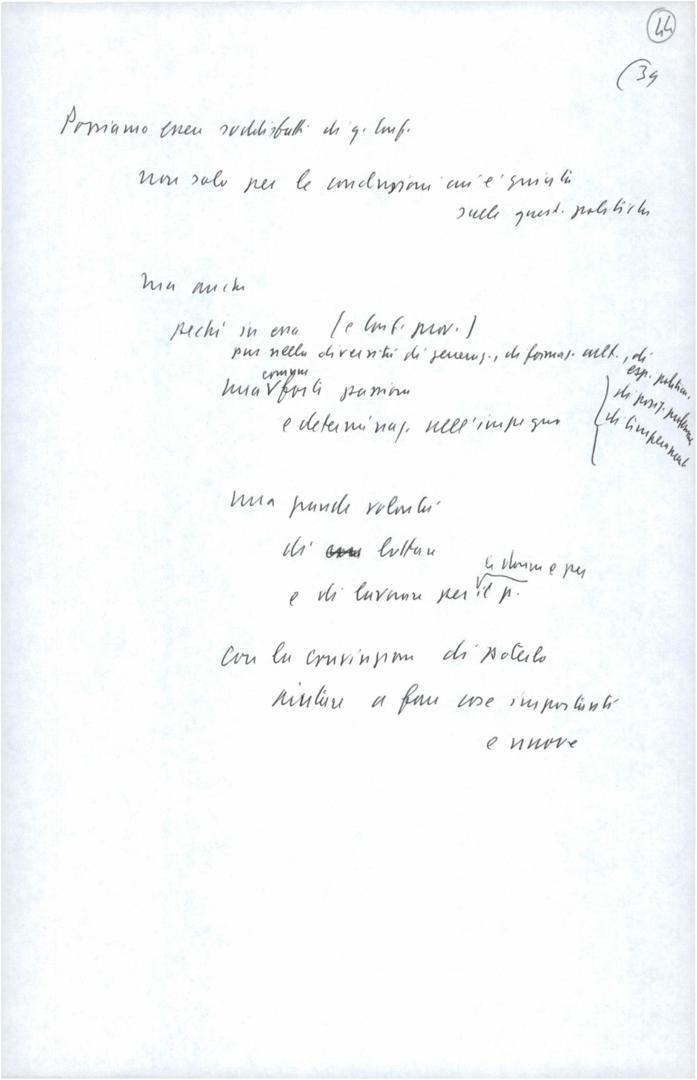 44
(39
Possiamo essere soddisfatti di q. Conf.
non solo per le conclusioni cui è giunta
sulle quest. politiche
ma anche
perché in essa (e Conf. prov.)
pur nella diversità di generaz., di formaz. cult., di
esp. politica,
di posiz. 
comune
una forte passione
e determinaz. nell'impegno
una grande volontà
di lottare
le donne e per
e di lavorare per il p.
con la convinzione di poterlo
aiutare a fare cose importanti
e nuove